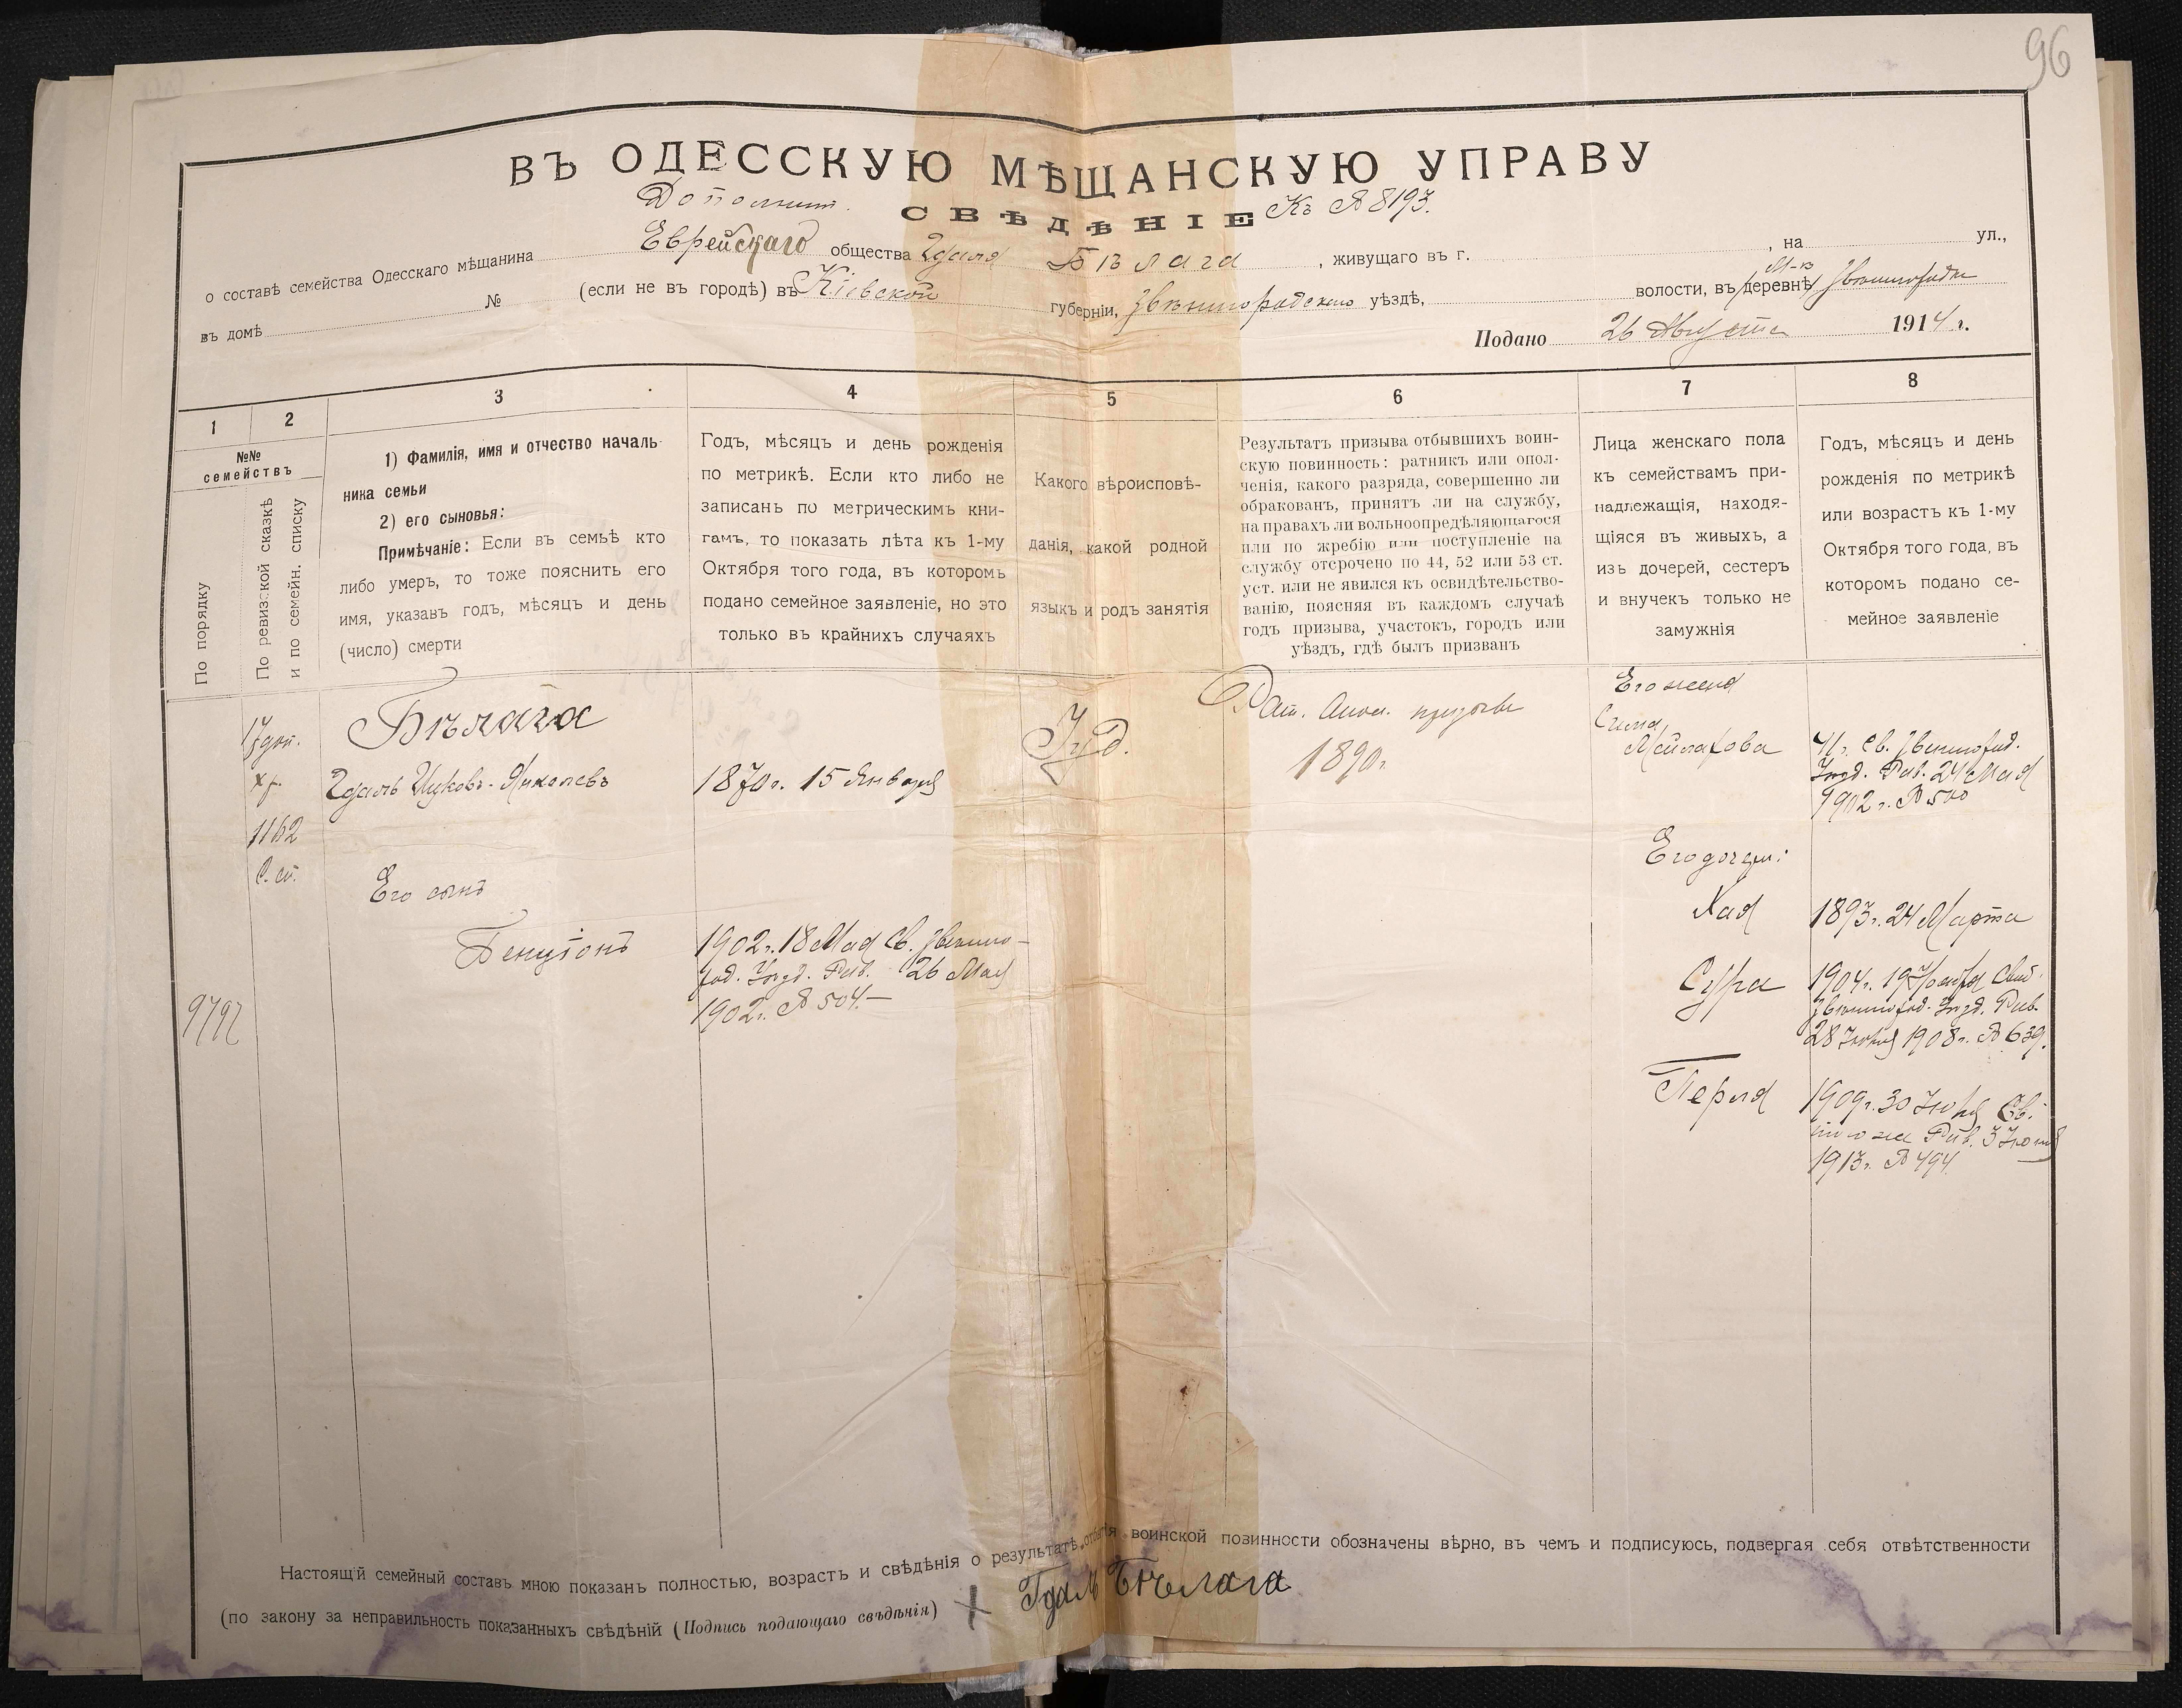 96
ВЪ ОДЕССКУЮ МѢЩАНСКУЮ УПРАВУ
Дополнит.
СВѢДѢНІЕ Къ № 8193.
о составѣ семейства Одесскаго мѣщанина Еврейскаго общества Гдаля Бѣлага, живущаго въ г. , на ул.,
въ домѣ № (если не въ городѣ) въ Кіевской губерніи, Звенигородскаго уѣздѣ, волости, въ деревнѣ М-ѣ Звенигородкѣ
Подано 26 Августа 1914 г.
1 2 3 4 5 6 7 8
№№ семействъ
По порядку
По ревизской сказкѣ
и по семейн. списку
1) Фамилія, имя и отчество началь-
ника семьи
2) его сыновья:
Примѣчаніе: Если въ семьѣ кто
либо умеръ, то тоже пояснить его
имя, указавъ годъ, мѣсяцъ и день
(число) смерти
Годъ, мѣсяцъ и день рожденія
по метрикѣ. Если кто либо не
записанъ по метрическимъ кни-
гамъ, то показать лѣта къ 1-му
Октября того года, въ которомъ
подано семейное заявленіе, но это
только въ крайнихъ случаяхъ
Какого вѣроисповѣ-
данія, какой родной
языкъ и родъ занятія
Результатъ призыва отбывшихъ воин-
скую повинность: ратникъ или опол-
ченія, какого разряда, совершенно ли
обракованъ, принятъ ли на службу,
на правахъ ли вольноопредѣляющагося
или по жребію или поступленіе на
службу отсрочено по 44, 52 или 53 ст.
уст. или не явился къ освидѣтельство-
ванію, поясняя въ каждомъ случаѣ
годъ призыва, участокъ, городъ или
уѣздъ, гдѣ былъ призванъ
Лица женскаго пола
къ семействамъ при-
надлежащія, находя-
щіяся въ живыхъ, а
изъ дочерей, сестеръ
и внучекъ только не
замужнія
Годъ, мѣсяцъ и день
рожденія по метрикѣ
или возрастъ къ 1-му
Октября того года, въ
которомъ подано се-
мейное заявленіе
17 доп.
хр.
1162
С. сп.
9792
Бѣлага
Гдаль Ицковъ-Янкелевъ
1870 г. 15 Января
Іуд.
Рат. Опол. призыва
1890 г.
Его жена
Сима
Мейлахова
41 г. Св. Звенигород.
Уѣзд. Рав. 24 Мая
1902 г. № 500
Его сынъ
Бенціонъ
1902 г. 18 Мая Св. Звениго-
род. Уѣзд. Рав. 26 Мая
1902 г. № 504.—
Его дочери:
Хая
1893 г. 24 Марта
Сура
1904 г. 19 Ноября Свид.
Звенигород. Уѣзд. Рав.
28 Іюня 1908 г. № 639.
Перля
1909 г. 30 Іюня Св.
того же Рав. 3 Іюня
1913 г. № 494
Настоящій семейный составъ мною показанъ полностью, возрастъ и свѣдѣнія о результатѣ отбытія воинской повинности обозначены вѣрно, въ чемъ и подписуюсь, подвергая себя отвѣтственности
(по закону за неправильность показанныхъ свѣдѣній (Подпись подающаго свѣдѣнія) Гдаль Бѣлага